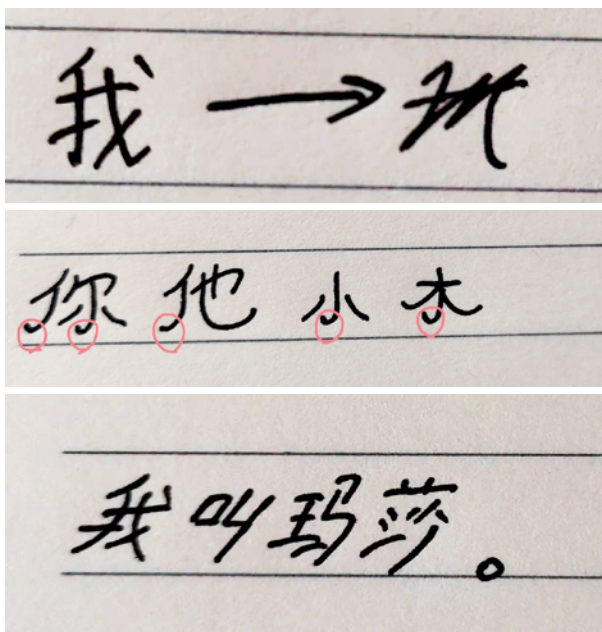 我 →
你 他 小 木
我叫玛莎。